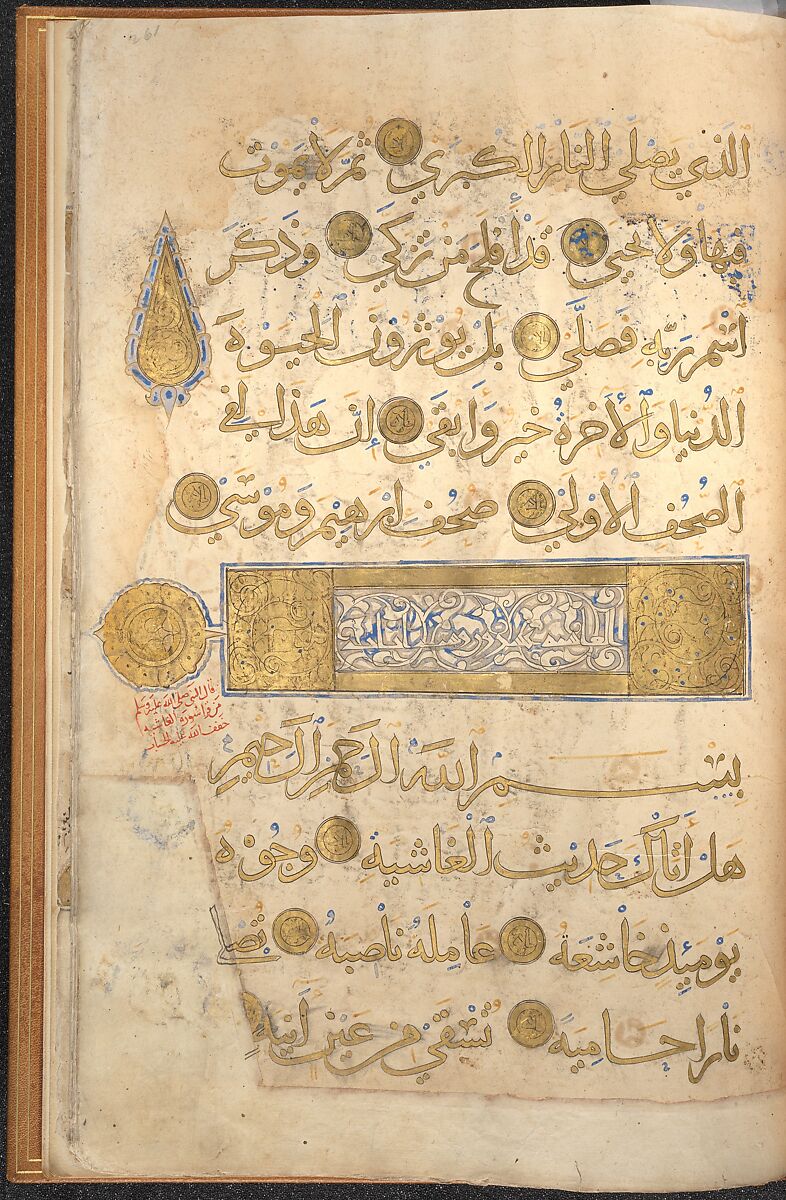 261
الَّذِي يَصْلَى النَّارَ الْكُبْرَى ثُمَّ لَا يَمُوتُ
فِيهَا وَلَا يَحْيَى قَدْ أَفْلَحَ مَنْ تَزَكَّى وَذَكَرَ
اسْمَ رَبِّهِ فَصَلَّى بَلْ يُوْثِرُونَ الْحَيَوةَ
الدُّنْيَا وَالْآخِرَةُ خَيْرٌ وَأَبْقَى إِنَّ هَذَا لَفِي
الصُّحُفِ الْأُولَى صُحُفِ إِبْرَهِيمَ وَمُوسَى
قال النبي صلى الله عليه وسلم
من قرا سورة الغاشية
خفف الله عنه
بِسْمِ اللَّهِ الرَّحْمَنِ الرَّحِيمِ
هَلْ أَتَاكَ حَدِيثُ الْغَاشِيَةِ وُجُوهٌ
يَوْمَئِذٍ خَاشِعَةٌ عَامِلَةٌ نَاصِبَةٌ تَصْلَى
نَارًا حَامِيَةً تُسْقَى مِنْ عَيْنٍ آنِيَةٍ